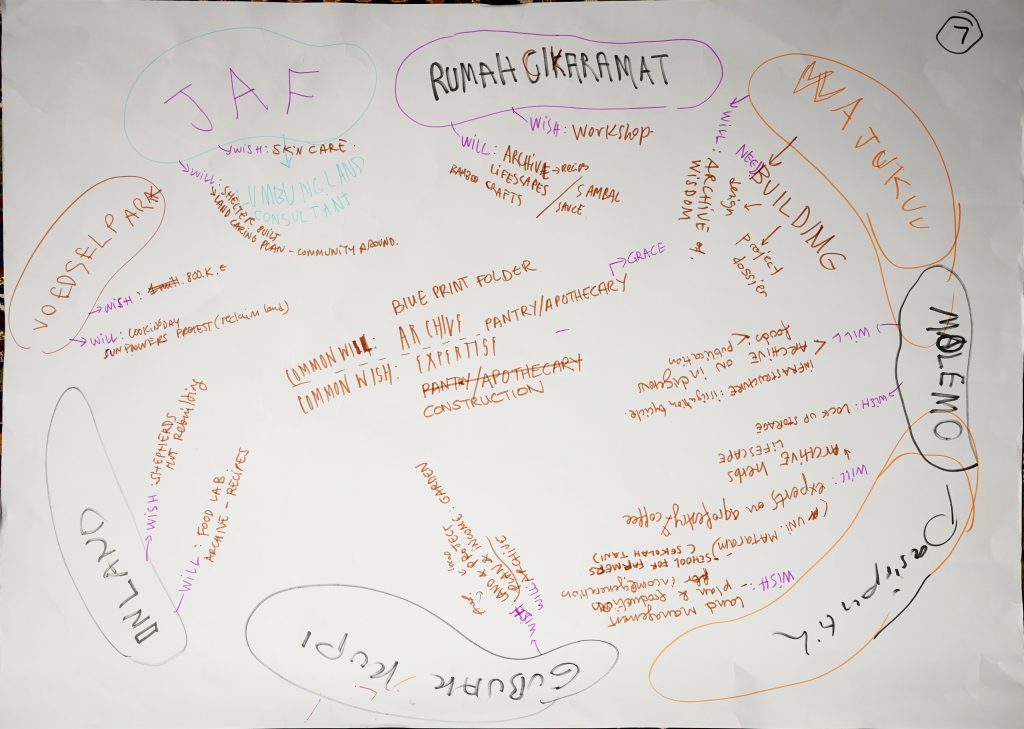 7
JAF
WISH: SKIN CARE.
LUMBUNG LAND
CONSULTANT
WILL: SHELTER BUILT
LAND CARING PLAN - COMMUNITY AROUND.
RUMAH CIKARAMAT
WISH: WORKSHOP.
WILL: ARCHIVE → RECIPS
LIFESCAPES / SAMBAL
BAMBOO CRAFTS / SAUCE
WAJUKUU
WILL: ARCHIVE OF.
WISDOM
NEED
BUILDING
design
project
dossier
VOEDSELPARK
WISH: 800.K. €
WILL: COOKING DAY
SUNFLOWERS PROTEST (reclaim land)
BLUE PRINT FOLDER
COMMON WILL: ARCHIVE PANTRY/APOTHECARY
GRACE
COMMON WISH: EXPERTISE
PANTRY/APOTHECARY
CONSTRUCTION
MOLEMO
WILL
ARCHIVE ON indigenous
foods publication
WISH: LOCK UP STORAGE
INFRASTRUCTURE: irrigation,
Pasirputih
WILL: experts on agroforestry & coffee
ARCHIVE herbs
LIFESCAPE
(UNI. MATARAM)
- SCHOOL FOR FARMERS
(SEKOLAH TANI)
WISH:
land management
plan & production
for income generation
GUBUAK KUPI
WISH
LAND & PROTECT
PLAN & INCOME: GARDEN
WILL: ARCHIVE
ON LAND
WISH: SHEPHERDS
HUT REBUILDING
WILL: FOOD LAB
ARCHIVE - RECIPES